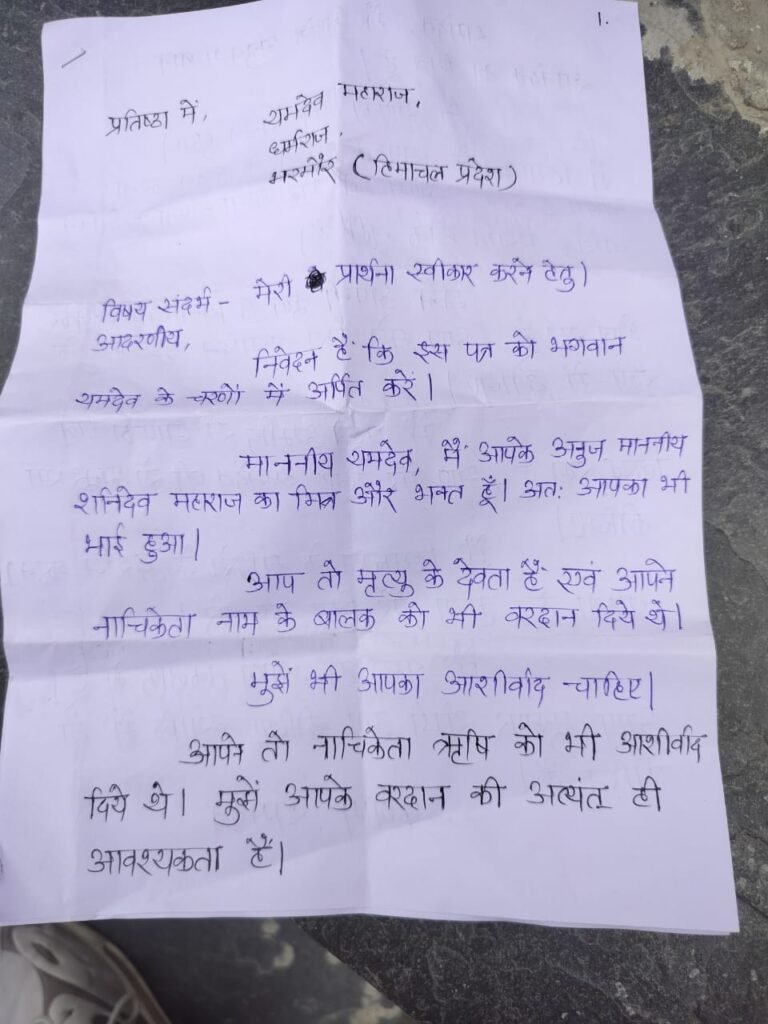 1.
प्रतिष्ठा में, यमदेव महाराज,
धर्मराज,
भरमौर (हिमाचल प्रदेश)
विषय संदर्भ - मेरी प्रार्थना स्वीकार करने हेतु।
आदरणीय,
निवेदन हैं कि इस पत्र को भगवान
यमदेव के चरणों में अर्पित करें।
माननीय यमदेव, मैं आपके अनुज माननीय
शनिदेव महाराज का मित्र और भक्त हूँ। अतः आपका भी
भाई हुआ।
आप तो मृत्यु के देवता हैं एवं आपने
नाचिकेता नाम के बालक को भी वरदान दिये थे।
मुझें भी आपका आशीर्वाद चाहिए।
आपने तो नाचिकेता ऋषि को भी आशीर्वाद
दिये थे। मुझें आपके वरदान की अत्यंत ही
आवश्यकता हैं।